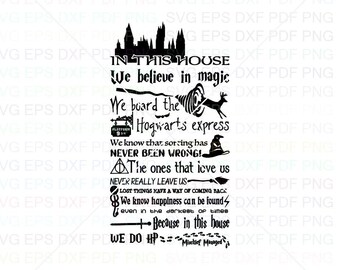 SVG EPS DXF PDF PNG
IN THIS HOUSE
We believe in magic
We board the
Hogwarts express
PLATFORM
9 3/4
We know that sorting has
NEVER BEEN WRONG!
The ones that love us
NEVER REALLY LEAVE US
LOST THINGS HAVE A WAY OF COMING BACK
We know happiness can be found
even in the darkest of times
Because in this house
WE DO HP
Mischief Managed